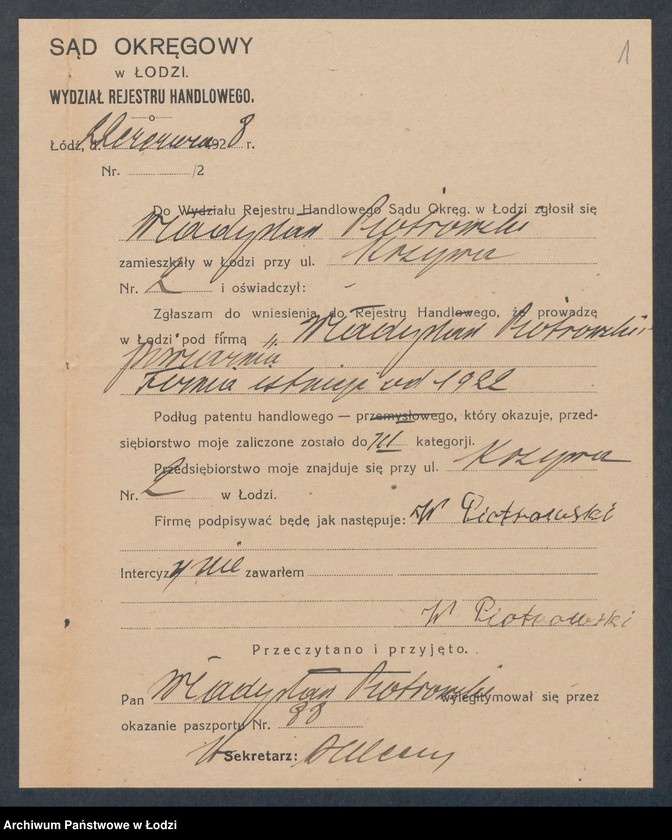 SĄD OKRĘGOWY
w ŁODZI.
WYDZIAŁ REJESTRU HANDLOWEGO.
1
Łódź, d. czerwca 1928 r.
Nr. /2
Do Wydziału Rejestru Handlowego Sądu Okręg. w Łodzi zgłosił się
Władysław Piotrowski
zamieszkały w Łodzi przy ul. Krzywa
Nr. 2 i oświadczył:
Zgłaszam do wniesienia do Rejestru Handlowego, że prowadzę
w Łodzi pod firmą „Władysław Piotrowski-
piwiarnia"
Firma istnieje od 1922
Podług patentu handlowego — przemysłowego, który okazuje, przed-
siębiorstwo moje zaliczone zostało do III kategorji.
Przedsiębiorstwo moje znajduje się przy ul. Krzywa
Nr. 2 w Łodzi.
Firmę podpisywać będę jak następuje: W Piotrowski
Intercyzy nie zawarłem
W Piotrowski
Przeczytano i przyjęto.
Pan Władysław Piotrowski wylegitymował się przez
okazanie paszportu Nr. 88
Sekretarz:
Archiwum Państwowe w Łodzi